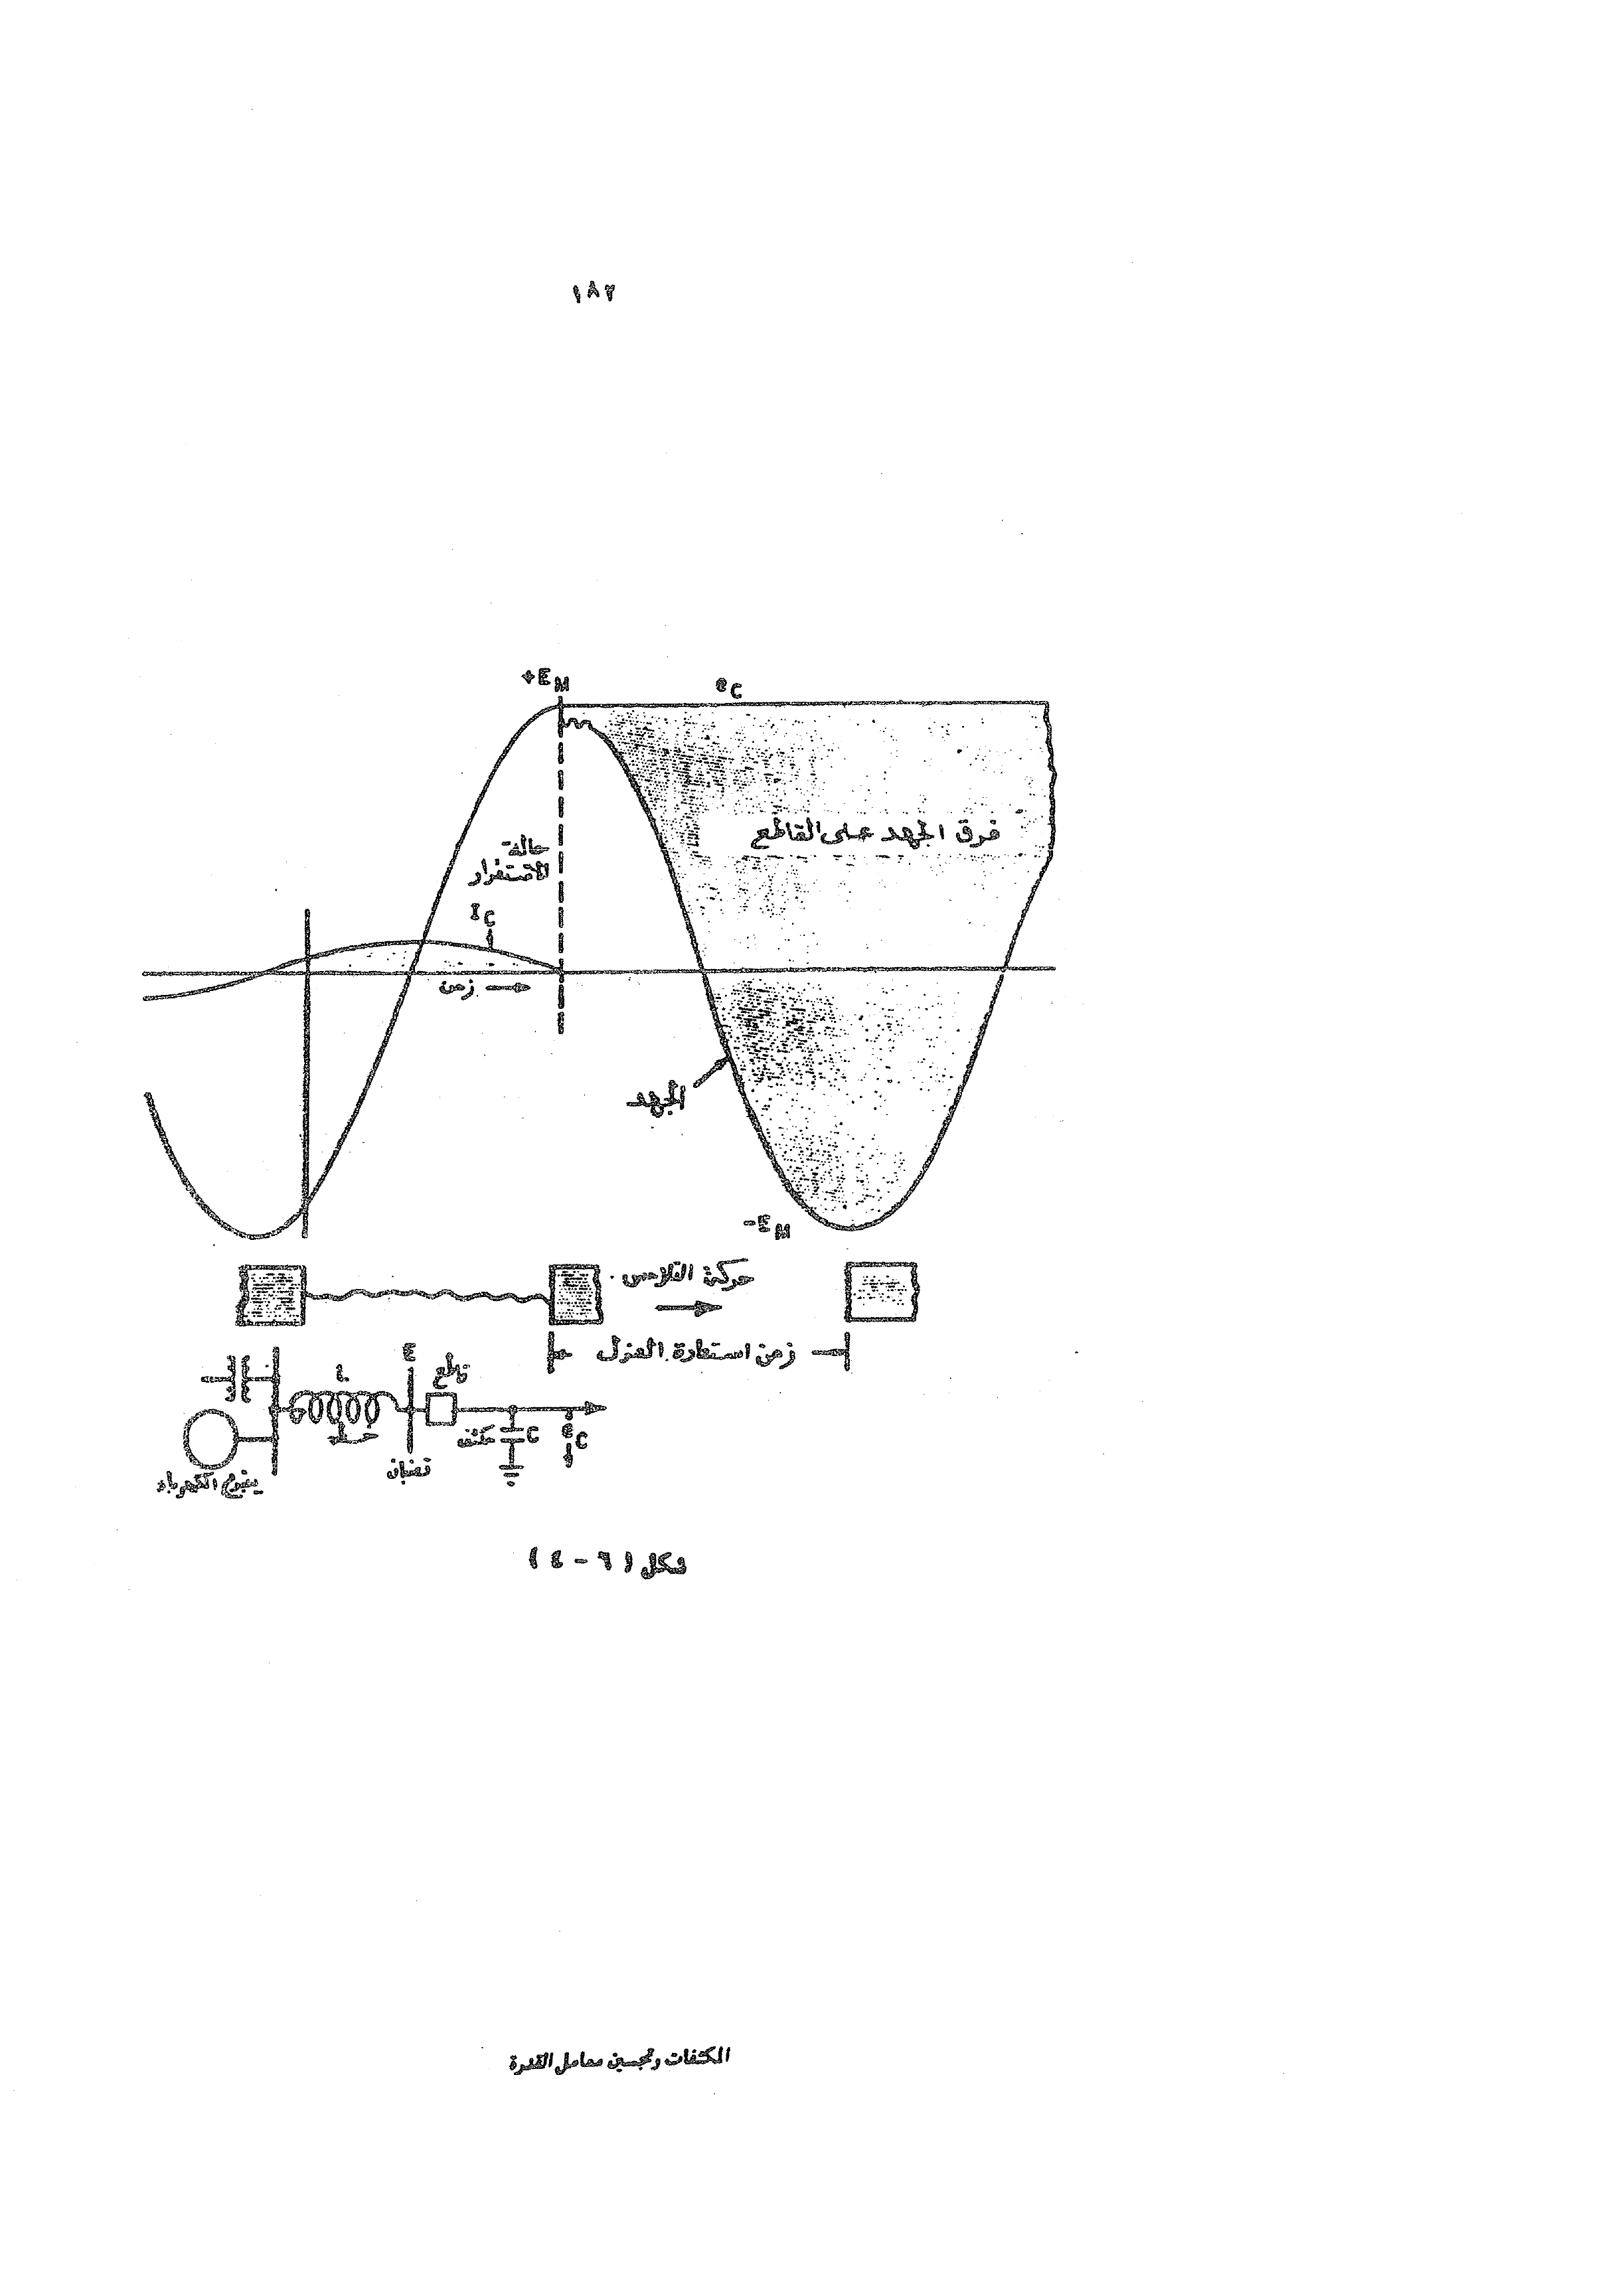 ١٨٢
+EM
eC
فرق الجهد على القاطع
حالة
الاستقرار
IC
زمن
الجهد
-EM
حركة التلامس
زمن استعادة العزل
E
L
قاطع
مكثف
C
eC
قضبان
ينبوع الكهرباء
شكل (٦ - ٤)
المكثفات وتحسين معامل القدرة